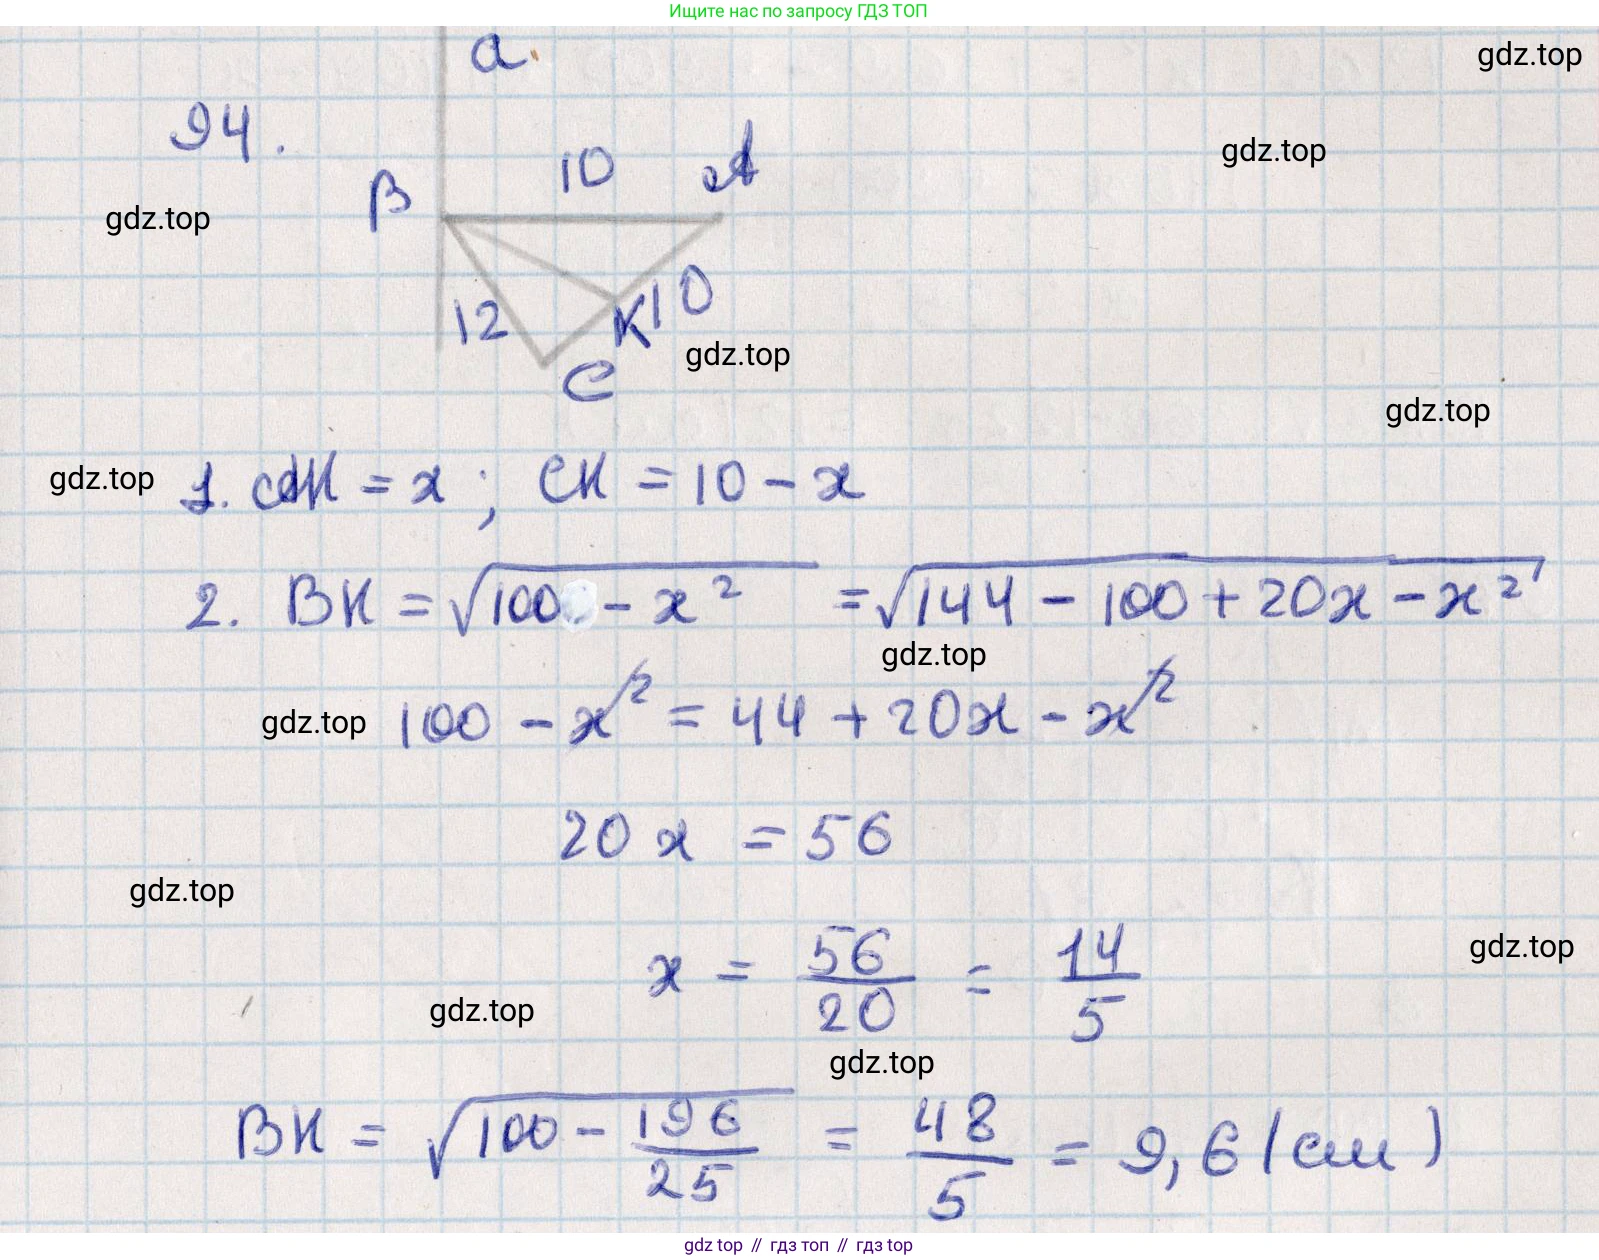 Ищите нас по запросу ГДЗ ТОП
a.
gdz.top
94.
10 A
gdz.top
B
gdz.top
12 K 10
gdz.top
C
gdz.top
gdz.top
1. AK = x ; CK = 10 - x
2. BK = √100 - x² = √144 - 100 + 20x - x²
gdz.top
gdz.top
100 - x² = 44 + 20x - x²
20x = 56
gdz.top
gdz.top
x = 56/20 = 14/5
gdz.top
gdz.top
BK = √100 - 196/25 = 48/5 = 9,6 (см)
gdz top // гдз топ // гдз top